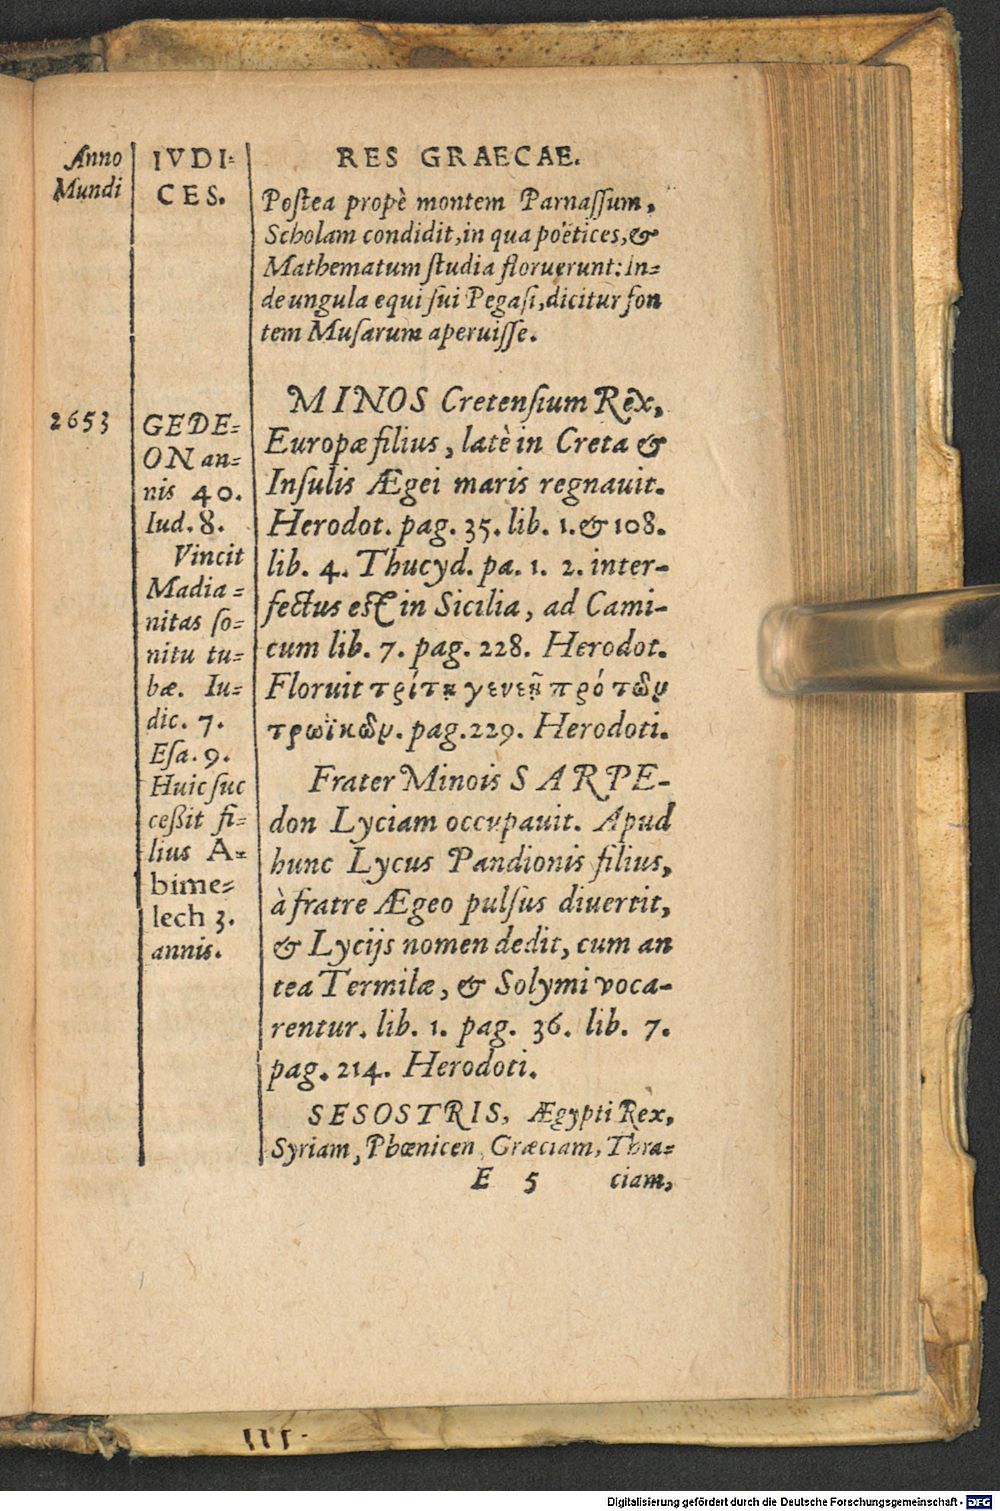 Anno
Mundi
IVDI-
CES.
RES GRAECAE.
Poſtea propè montem Parnaſſum,
Scholam condidit, in qua poëtices, &
Mathematum ſtudia floruerunt: in-
de ungula equi ſui Pegaſi, dicitur fon
tem Muſarum aperuiſſe.
2653
GEDE-
ON an-
nis 40.
Iud. 8.
Vincit
Madia-
nitas ſo-
nitu tu-
bæ. Iu-
dic. 7.
Eſa. 9.
Huic ſuc
ceßit fi-
lius A-
bime-
lech 3.
annis.
MINOS Cretenſium Rex,
Europæ filius, latè in Creta &
Inſulis Ægei maris regnauit.
Herodot. pag. 35. lib. 1. & 108.
lib. 4. Thucyd. pa. 1. 2. inter-
fectus eſt in Sicilia, ad Cami-
cum lib. 7. pag. 228. Herodot.
Floruit τρίτῃ γενεῇ πρό τῶν
τρωϊκῶν. pag. 229. Herodoti.
Frater Minois SARPE-
don Lyciam occupauit. Apud
hunc Lycus Pandionis filius,
à fratre Ægeo pulſus diuertit,
& Lycijs nomen dedit, cum an
tea Termilæ, & Solymi voca-
rentur. lib. 1. pag. 36. lib. 7.
pag. 214. Herodoti.
SESOSTRIS, Ægypti Rex,
Syriam, Phœnicen, Græciam, Thra-
E 5 ciam,
Digitalisierung gefördert durch die Deutsche Forschungsgemeinschaft - DFG